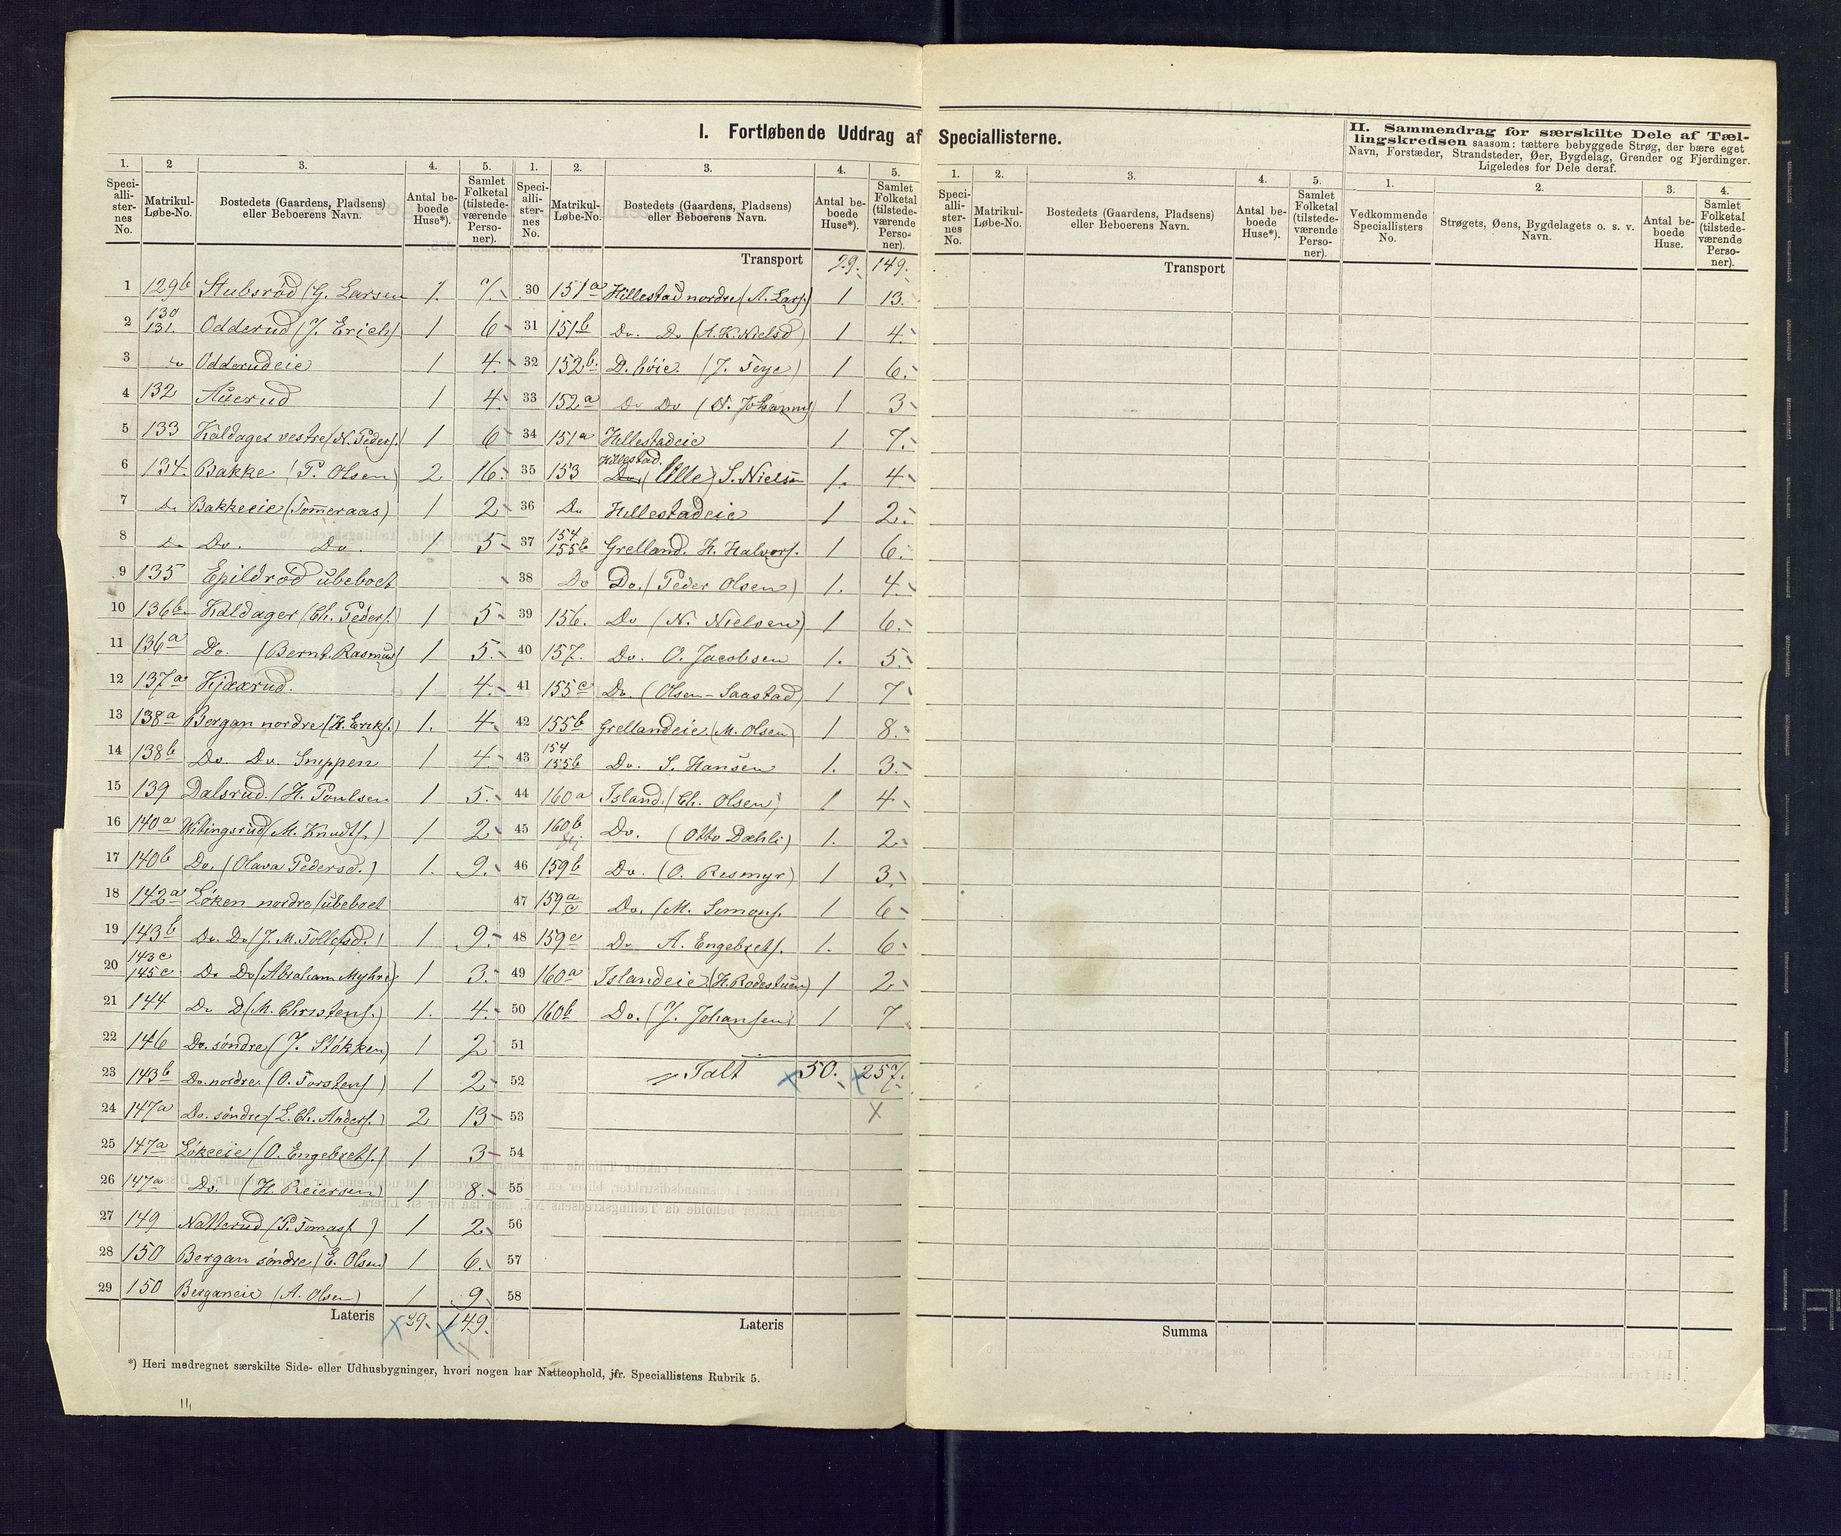 I. Fortløbende Uddrag af Speciallisterne.
II. Sammendrag for særskilte Dele af Tæl-
lingskredsen saasom: tættere bebyggede Strøg, der bære eget
Navn, Forstæder, Strandsteder, Øer, Bygdelag, Grender og Fjerdinger.
Ligeledes for Dele deraf.
1. 2 3. 4. 5. 1. 2. 3. 4. 5.
Speciallisternes No. Matrikul-Løbe-No. Bostedets (Gaardens, Pladsens) eller Beboerens Navn. Antal beboede Huse*). Samlet Folketal (tilstedeværende Personer).
Speciallisternes No. Matrikul-Løbe-No. Bostedets (Gaardens, Pladsens) eller Beboerens Navn. Antal beboede Huse*). Samlet Folketal (tilstedeværende Personer).
1 129b Stubsrød (G. Larsen 1. 7
2 130 131. Odderud (J. Ericks) 1 6
3 Do Odderudeie 1 4.
4 132 Auerud 1 4.
5 133 Kaldager vestre (N. Peders.) 1 6
6 134. Bakke (P. Olsen) 2 16.
7 Do Bakkeeie (Tømeraas) 1 2
8 Do Do. Do. 1 5
9 135 Epildrød ubeboet
10 136b Kaldager (Ch. Peders.) 1 5
11 136a Do. (Bernt. Rasmus) 1 5.
12 137a Kjæxrud. 1 4.
13 138a Bergan nordre (K. Eriks.) 1. 4
14 138b Do. Do. Snippen 1 4.
15 139 Dalsrud. (H. Poulsen 1 5.
16 140a Witingsrud (M. Knudts.) 1 2
17 140b Do. (Olava Pedersd.) 1. 9.
18 142a Løken nordre (ubeboet
19 143b Do. Do (J. M. Tollefsd.) 1 9.
20 143c 145c Do Do (Abraham Myhre) 1 3.
21 144 Do D (M. Christens.) 1. 4.
22 146 Do. søndre (J. Støkken) 1 2
23 143b Do. nordre. (O. Torstens) 1 2
24 147a Do. søndre (L. Ch. Anders.) 2 13
25 147a Løkeeie (O. Engebrets.) 1 3
26 147a Do. (H. Reiersen) 1 8.
27 149 Natterud (P. Tomass) 1 2.
28 150 Bergan søndre (E. Olsen) 1 6.
29 150 Berganeie (A. Olsen) 1 9
Lateris 29. 149.
Transport 29. 149.
30 151a Hillestad nordre (A. Lars.) 1 13.
31 151b Do. Do (A. K. Nielsd) 1 4.
32 152b. D. høie. (J. Teye) 1 6.
33 152a Do Do (N. Johannes) 1 3
34 151a Hillestadeie 1 7.
35 153 Hillestad. Do (lille) S. Nielsen 1. 4
36 Do Hillestadeie 1 2.
37 154 155b Grelland. H. Halvors. 1 6.
38 Do Do. (Peder Olsen) 1. 4.
39 156. Do (N. Nielsen) 1 6.
40 157. Do. O. Jacobsen 1. 5.
41 155c Do. (Olsen-Saastad) 1 7
42 155b Grellandeie (M. Olsen) 1 8.
43 154 155b Do. S. Hansen 1. 3.
44 160a Island. (Ch. Olsen) 1 4
45 160b Do. (Otto Dæhli) 1. 2
46 159b Do. (O. Resmyr) 1 3.
47 159a c Do. (M. Simons. 1 6
48 159e Do A. Engebrets. 1. 6
49 160a Islandeie (H. Rodestuen) 1 2
50 160b Do. (J. Johansen) 1 7
51
52 Ialt 50. 257.
53
54
55
56
57
58
Lateris
*) Heri medregnet særskilte Side- eller Udhusbygninger, hvori nogen har Natteophold, jfr. Speciallistens Rubrik 5.
1. 2. 3. 4. 5.
Speciallisternes No. Matrikul-Løbe-No. Bostedets (Gaardens, Pladsens) eller Beboerens Navn. Antal beboede Huse*). Samlet Folketal (tilstedeværende Personer).
Transport
Summa
1. 2. 3. 4.
Vedkommende Speciallisters No. Strøgets, Øens, Bygdelagets o. s. v. Navn. Antal beboede Huse. Samlet Folketal (tilstedeværende Personer).